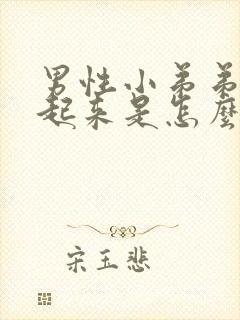 男性小弟弟
起来是怎么
宋玉悲